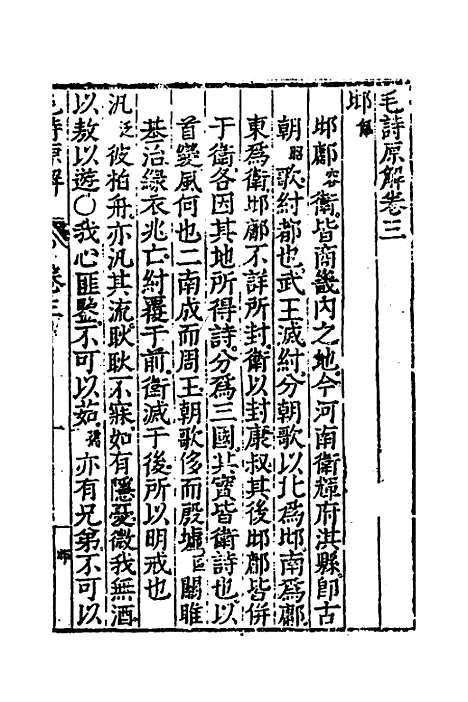 毛詩原解卷三
邶
邶鄘衛皆商畿内之地今河南衛輝府淇縣即古
朝歌紂都也武王滅紂分朝歌以北為邶南為鄘
東為衛邶鄘不詳所封衛以封康叔其後邶鄘皆併
于衛各因其地所得詩分為三國其實皆衛詩也以
首變風何也二南成而周王朝歌侈而殷墟關雎
基治綠衣兆亡紂覆于前衛滅于後所以明戒也
汎彼柏舟亦汎其流耿耿不寐如有隱憂微我無酒
以敖以遊○我心匪鑒不可以茹亦有兄弟不可以
毛詩原解 卷三 一 邶